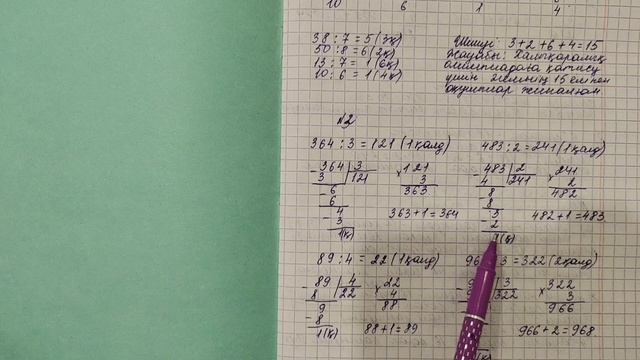 10 6 1 4
38 : 7 = 5 (3қ)
50 : 8 = 6 (2қ)
13 : 7 = 1 (6қ)
10 : 6 = 1 (4қ)
Шешуі: 3+2+6+4=15
Жауабы: Халықаралық
олимпиадаға қатысу
үшін жемнің 15 елінен
оқушылар жиналған.
№2
364 : 3 = 121 (1қалд)
483 : 2 = 241 (1қалд)
364 3
3 121
6
6
4
3
1(қ)
121
3
363
363+1=364
483 2
4 241
8
8
3
2
1(қ)
241
2
482
482+1=483
89 : 4 = 22 (1қалд)
3 = 322 (2қалд)
89 4
8 22
9
8
1(қ)
22
4
88
88+1=89
3
322
322
3
966
966+2=968